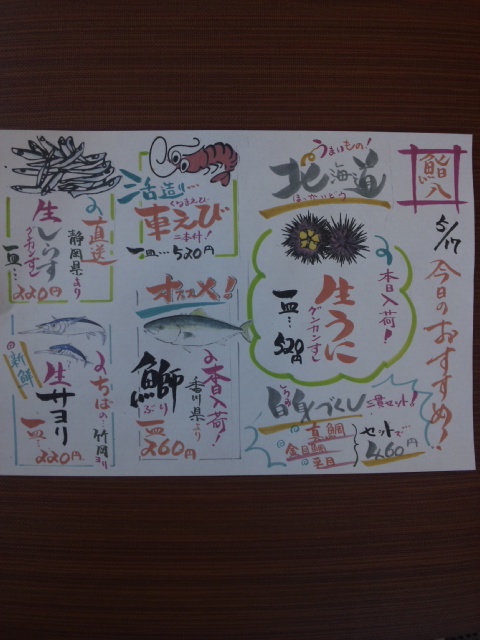 鮨八
5/17
今日のおすすめ!
うまいもの!
北海道
ほっかいどう
本日入荷!
生うに
グンカンずし
一皿…520円
白身づくし
三貫セット!
真鯛
金目鯛
セットで…
460円
活造り…
車えび
くるまえび
二本付!
一皿…520円
オススメ!
本日入荷!
香川県より
鰤
ぶり
一皿260円
直送
静岡県より
生しらす
グンカンずし
一皿…220円
新鮮
ちばの…竹岡ヨリ
生サヨリ
一皿…220円